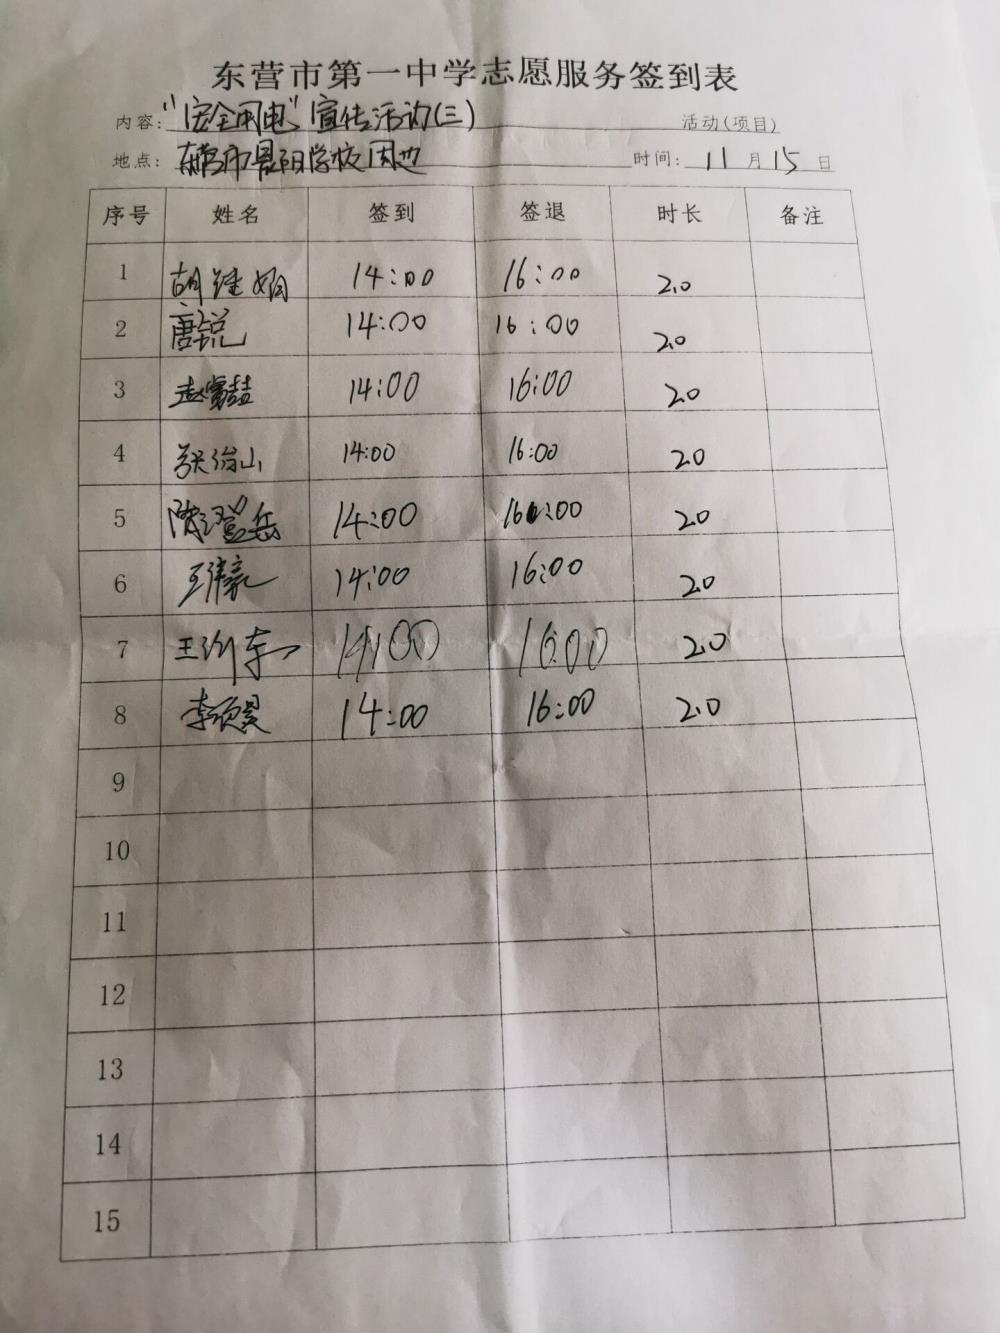 东营市第一中学志愿服务签到表
内容:"安全用电"宣传活动(三) 活动(项目)
地点:东营市晨阳学校周边 时间:11月15日
序号 姓名 签到 签退 时长 备注
1 胡继娴 14:00 16:00 2.0
2 唐锐 14:00 16:00 2.0
3 赵 14:00 16:00 2.0
4 张治山 14:00 16:00 2.0
5 陈澄岳 14:00 16:00 2.0
6 王伟豪 14:00 16:00 2.0
7 王 东 14:00 16:00 2.0
8 李硕昊 14:00 16:00 2.0
9
10
11
12
13
14
15